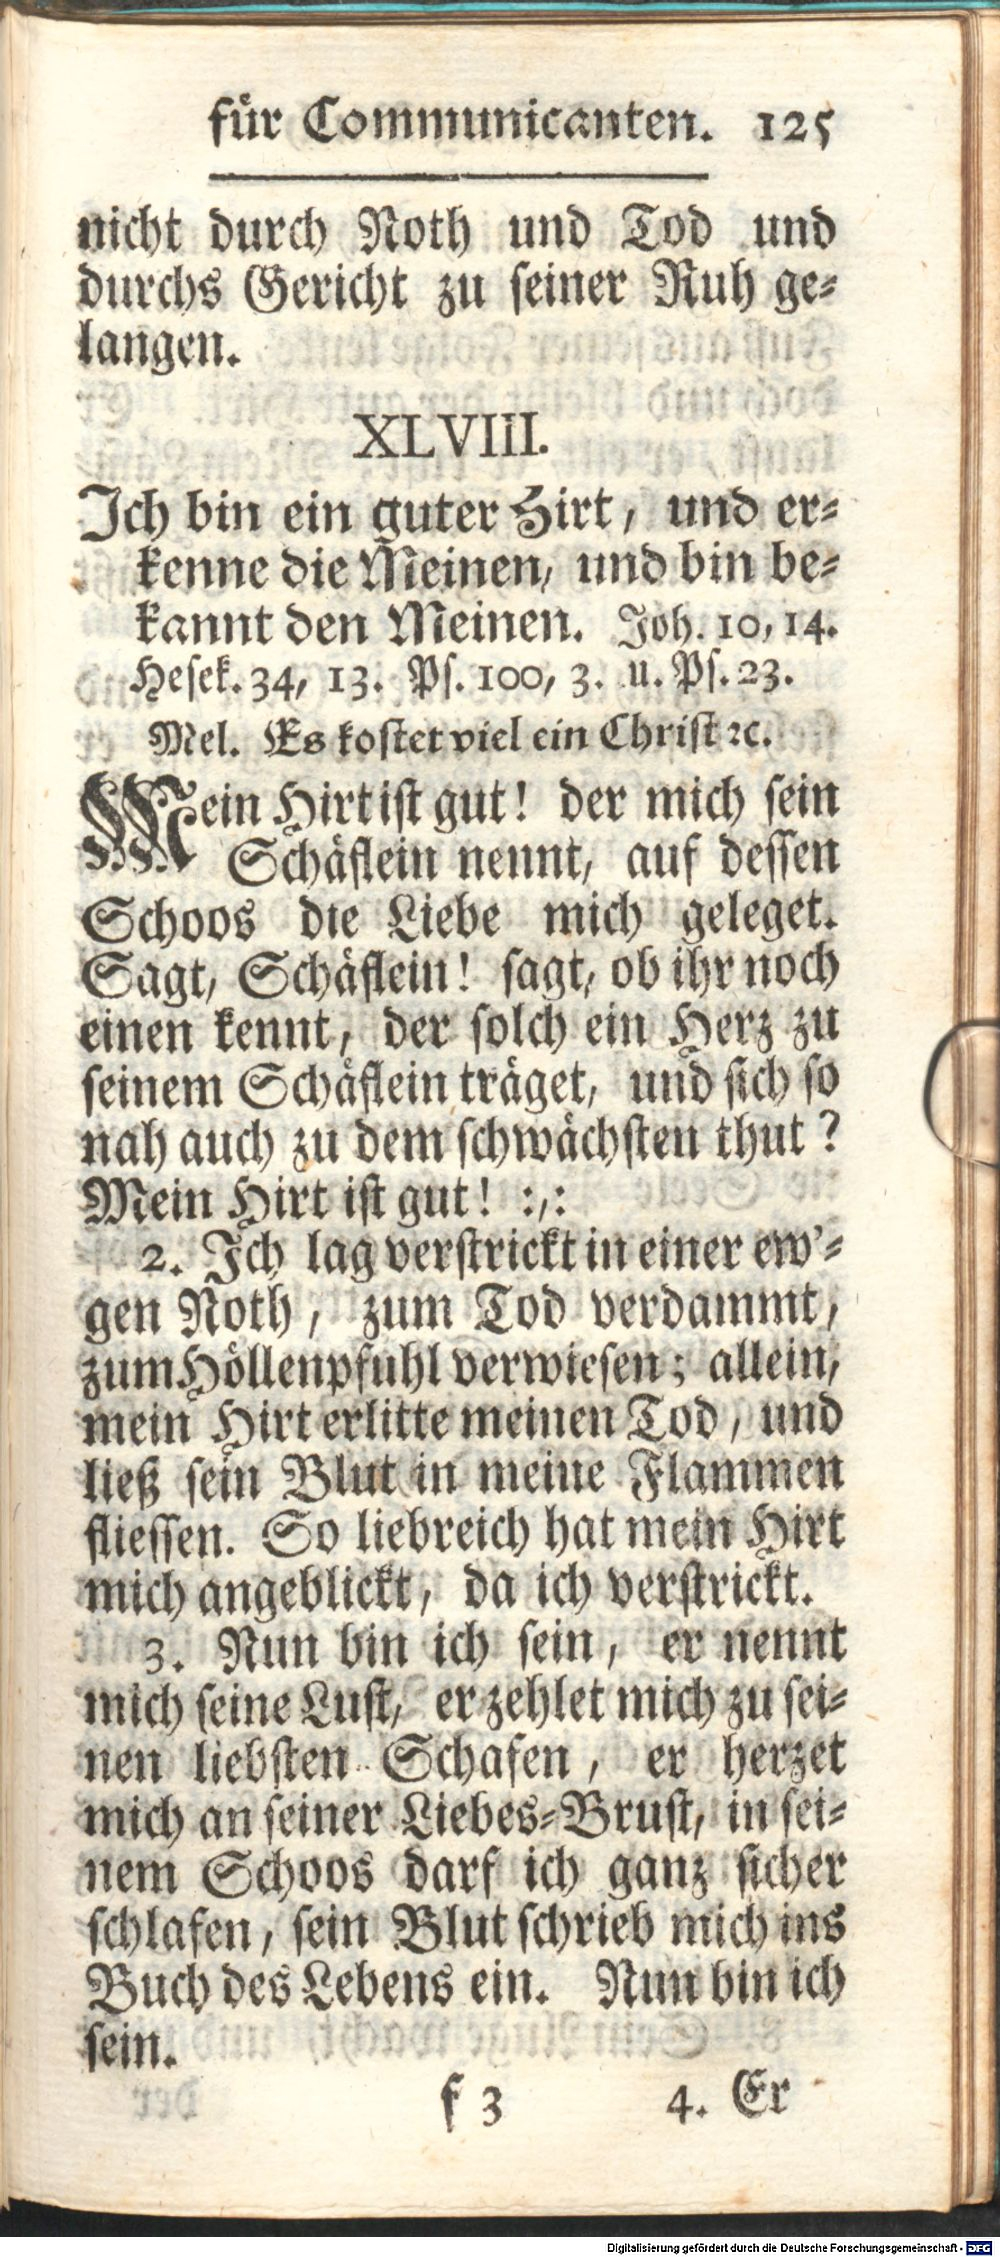 für Communicanten. 125
nicht durch Noth und Tod und
durchs Gericht zu seiner Ruh ge-
langen.
XLVIII.
Ich bin ein guter Hirt, und er-
kenne die Meinen, und bin be-
kannt den Meinen. Joh. 10, 14.
Hesek. 34, 13. Ps. 100, 3. u. Ps. 23.
Mel. Es kostet viel ein Christ ꝛc.
Mein Hirt ist gut! der mich sein
Schäflein nennt, auf dessen
Schoos die Liebe mich geleget.
Sagt, Schäflein! sagt, ob ihr noch
einen kennt, der solch ein Herz zu
seinem Schäflein träget, und sich so
nah auch zu dem schwächsten thut?
Mein Hirt ist gut! :,:
2. Ich lag verstrickt in einer ew'-
gen Noth, zum Tod verdammt,
zum Höllenpfuhl verwiesen; allein,
mein Hirt erlitte meinen Tod, und
ließ sein Blut in meine Flammen
fliessen. So liebreich hat mein Hirt
mich angeblickt, da ich verstrickt.
3. Nun bin ich sein, er nennt
mich seine Lust, er zehlet mich zu sei-
nen liebsten Schafen, er herzet
mich an seiner Liebes-Brust, in sei-
nem Schoos darf ich ganz sicher
schlafen, sein Blut schrieb mich ins
Buch des Lebens ein. Nun bin ich
sein.
f 3 4. Er
Digitalisierung gefördert durch die Deutsche Forschungsgemeinschaft - DFG